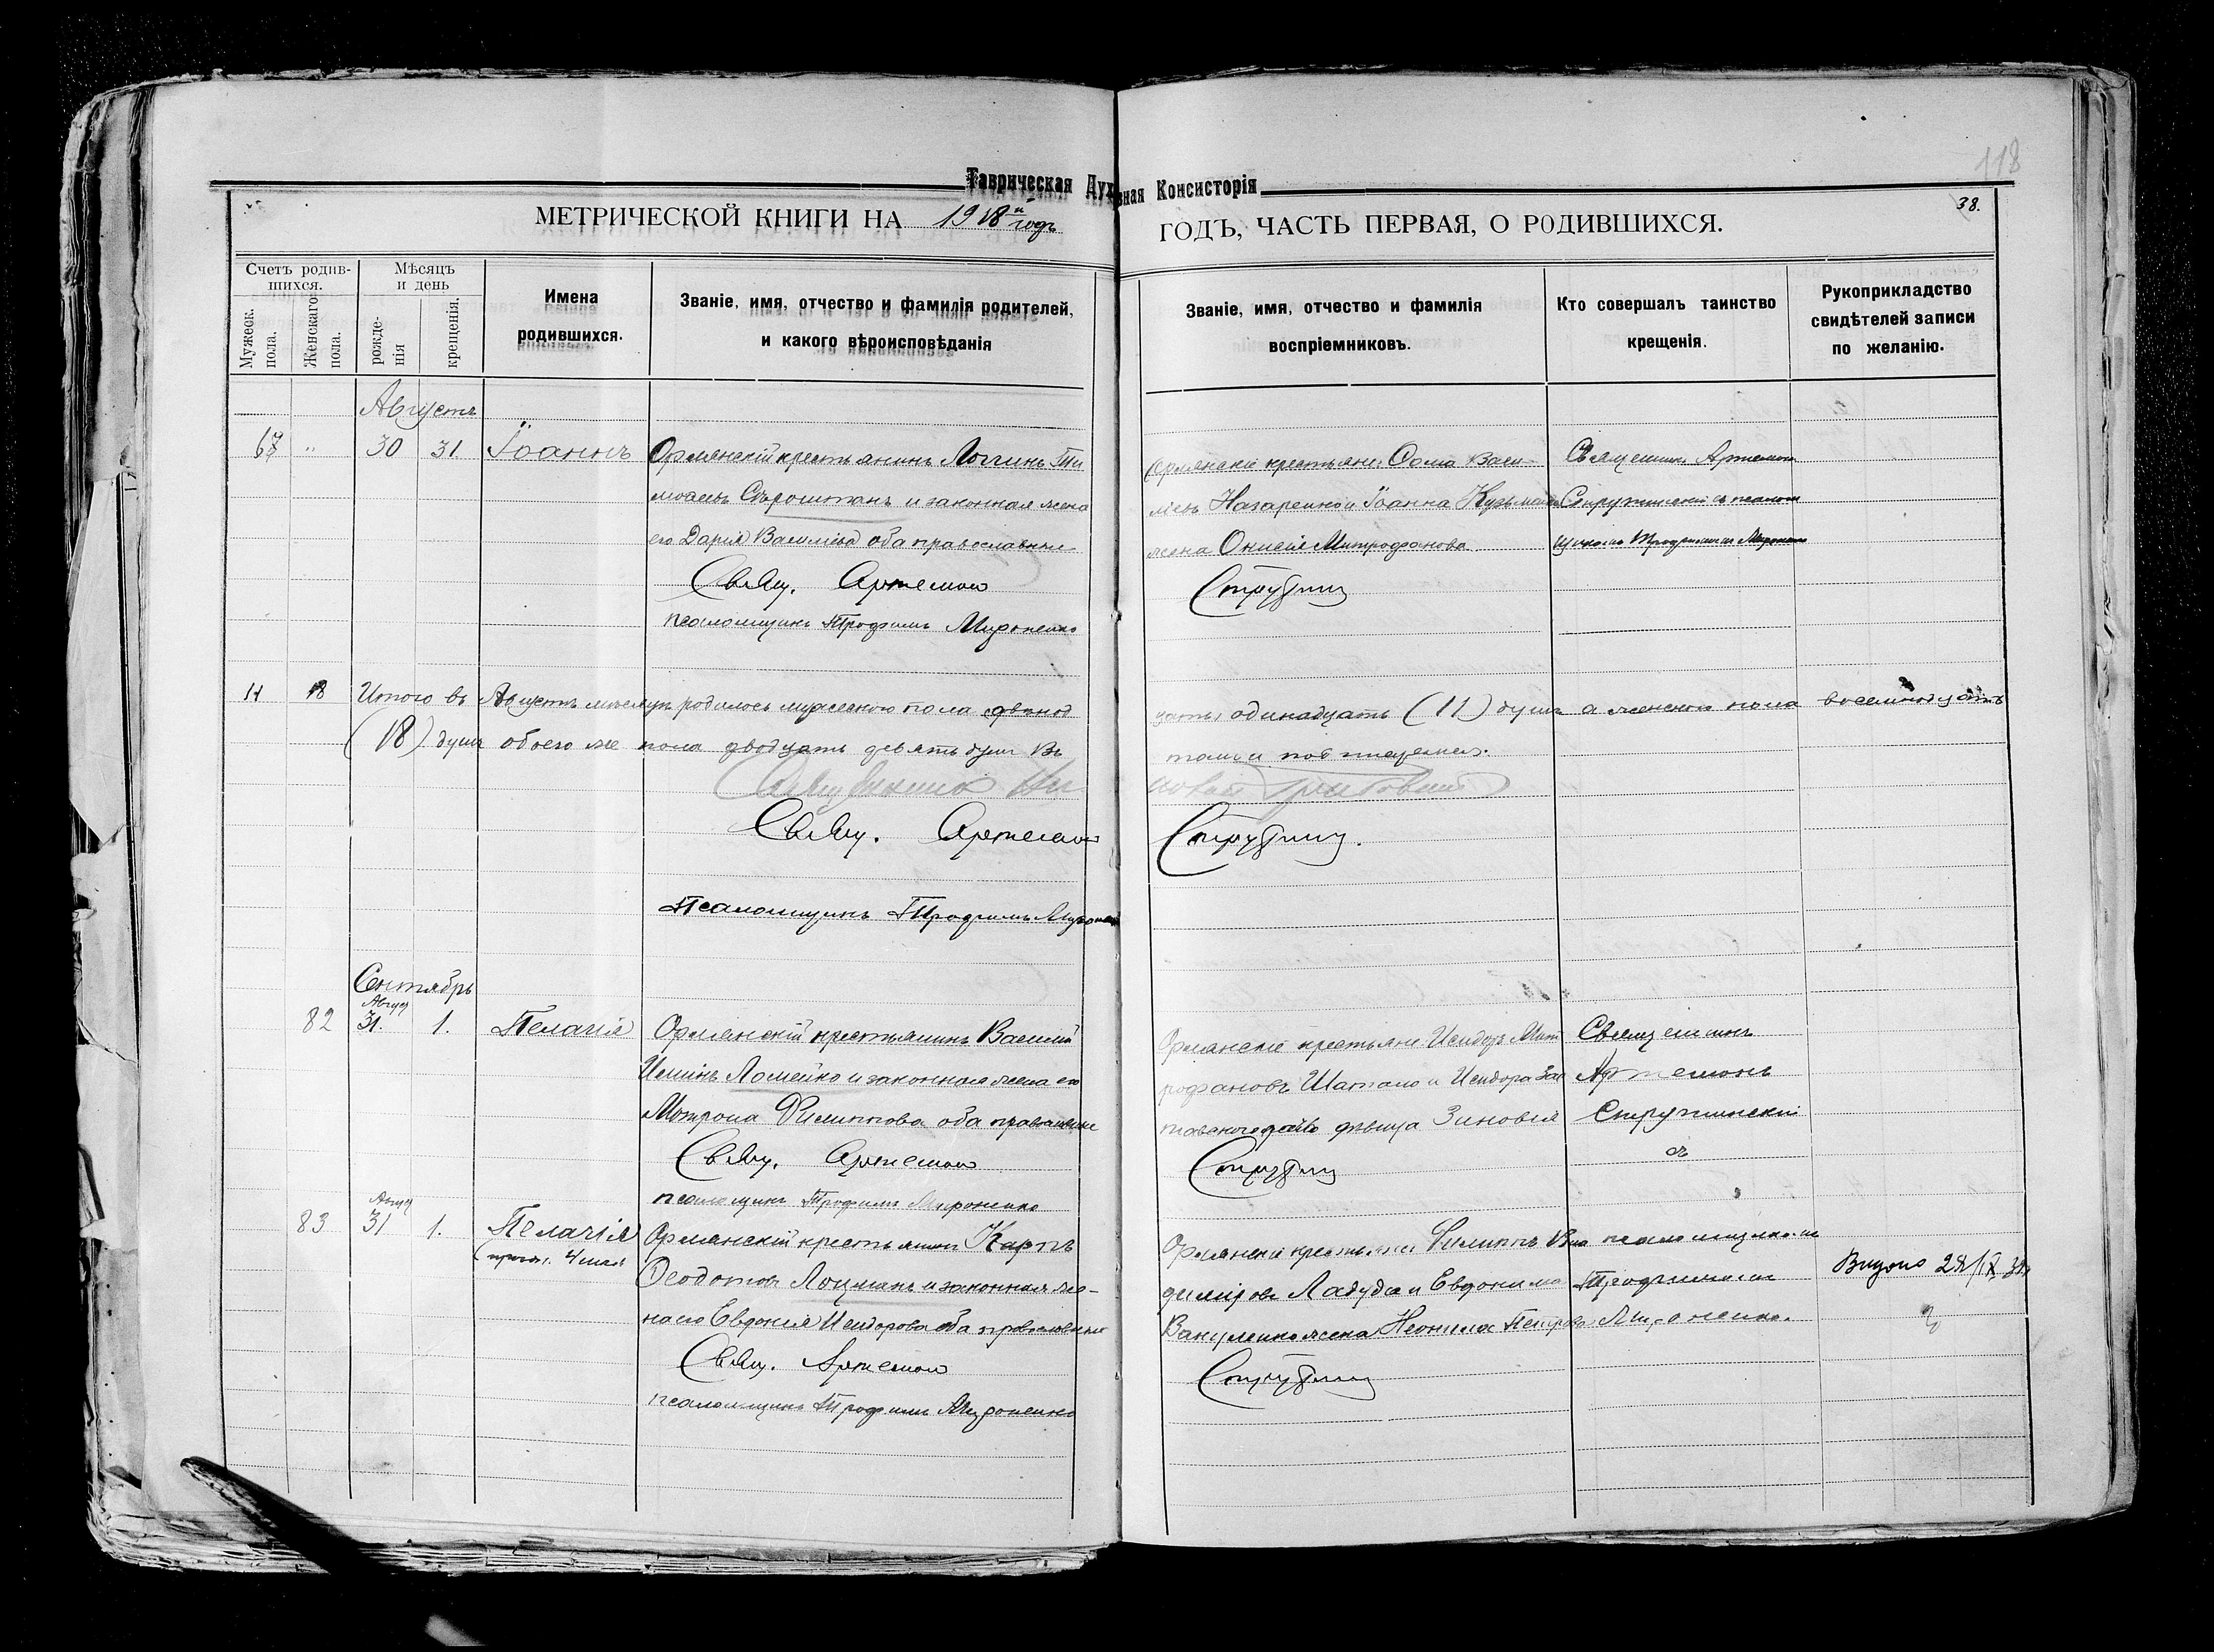 118
Таврическая Духовная Консисторія
МЕТРИЧЕСКОЙ КНИГИ НА 1918й годъ ГОДЪ, ЧАСТЬ ПЕРВАЯ, О РОДИВШИХСЯ.
38.
Счетъ родив-
шихся.
Мужеск.
пола.
Женскаго
пола.
Мѣсяцъ
и день
рожде-
нія
крещенія.
Имена
родившихся.
Званіе, имя, отчество и фамилія родителей,
и какого вѣроисповѣданія
Званіе, имя, отчество и фамилія
воспріемниковъ.
Кто совершалъ таинство
крещенія.
Рукоприкладство
свидѣтелей записи
по желанію.
Августъ
67 " 30 31 Іоаннъ
Орлянскій крестьянинъ Логгинъ Ти
моѳеевъ Сѣроштанъ и законная жена
его Дарія Василіева оба православные
Свящ. Артемон
псаломщикъ Трофимъ Мироненко
Орлянскіе крестьяне: Ѳома Васи-
ліевъ Назаренко и Іоанна
жена Митрофанова
Священникъ Артемон
Струтинскій съ псалом
щикомъ Трофимомъ Мироненко
11 18 Итого въ Августѣ мѣсяцѣ родилось мужескаго пола
одинадцать (11) душъ а женскаго пола восемнадцать
(18) душъ обоего же пола двадцать девять душъ Въ
томъ и подписуемся.
Свящ. Артемон
Псаломщикъ Трофимъ Мироненко
Сентябрь
82 Август 31. 1. Пелагія
Орлянскій крестьянинъ Василій
Ломейко и законная жена его
Матрона Филиппова оба православные
Свящ. Артемон
псаломщикъ Трофимъ Мироненко
Орлянскіе крестьяне: Исидоръ Мит
рофановъ Шатало и Исидора
дѣвица Зиновія
Священникъ
Артемонъ
Струтинскій
съ
83 Август 31 1. Пелагія
Орлянскій крестьянинъ Карпъ
Ѳеодотовъ Лоцманъ и законная же-
на его Евдокія Исидорова оба православные
Свящ. Артемон
псаломщикъ Трофимъ Мироненко
Орлянскіе крестьяне Филиппъ Вла
диміровъ Ладуда и Евдокима
Вакуленко жена Неонила Петрова
псаломщикомъ
Трофимомъ
Мироненко.